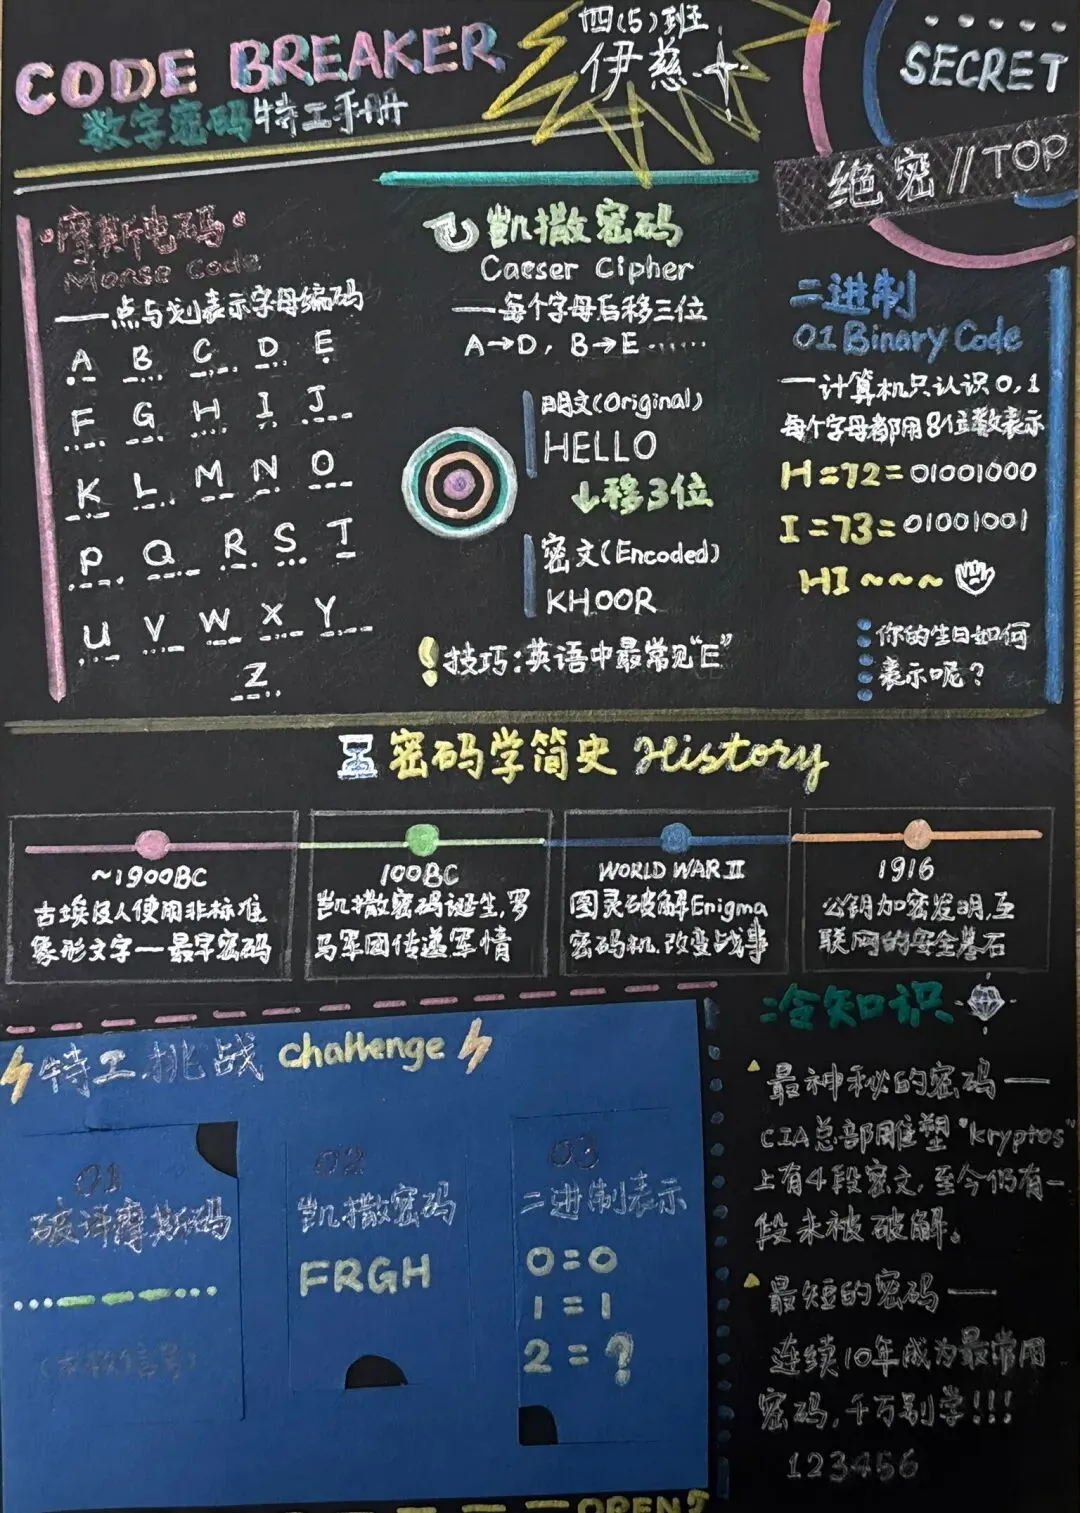 CODE BREAKER
数字密码特工手册
四(5)班
伊慈
SECRET
绝密//TOP
摩斯电码
Morse Code
——点与划表示字母编码
A B C D E
·— —··· —·—· —·· ·
F G H I J
··—· ——· ···· ·· ·———
K L M N O
—·— ·—·· —— —· ———
P Q R S T
·——· ——·— ·—· ··· —
U V W X Y
··— ···— ·—— —··— —·——
Z
——··
凯撒密码
Caeser Cipher
——每个字母后移三位
A→D, B→E······
明文(Original)
HELLO
↓移3位
密文(Encoded)
KHOOR
!技巧:英语中最常见"E"
二进制
01 Binary Code
——计算机只认识0,1
每个字母都用8位数表示
H=72=01001000
I=73=01001001
HI~~~
你的生日如何
表示呢?
密码学简史 History
~1900BC
古埃及人使用非标准
象形文字——最早密码
100BC
凯撒密码诞生,罗
马军团传递军情
WORLD WAR II
图灵破解Enigma
密码机,改变战事
1916
公钥加密发明,互
联网的安全基石
特工挑战 challenge
01
破译摩斯码
···———···
(求救信号)
02
凯撒密码
FRGH
03
二进制表示
0=0
1=1
2=?
OPEN
冷知识
最神秘的密码——
CIA总部雕塑"Kryptos"
上有4段密文,至今仍有一
段未被破解。
最短的密码——
连续10年成为最常用
密码,千万别学!!!
123456